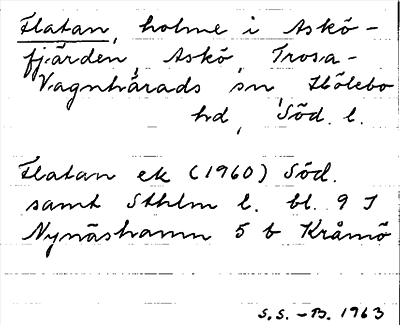 Flatan, holme i Askö-
fjärden, Askö, Trosa-
Vagnhärads sn, Hölebo
hd, Söd. l.
Flatan ek (1960) Söd.
samt Sthlm l. bl. 9 I
Nynäshamn 5 b Kråmö
S.S. - B. 1963